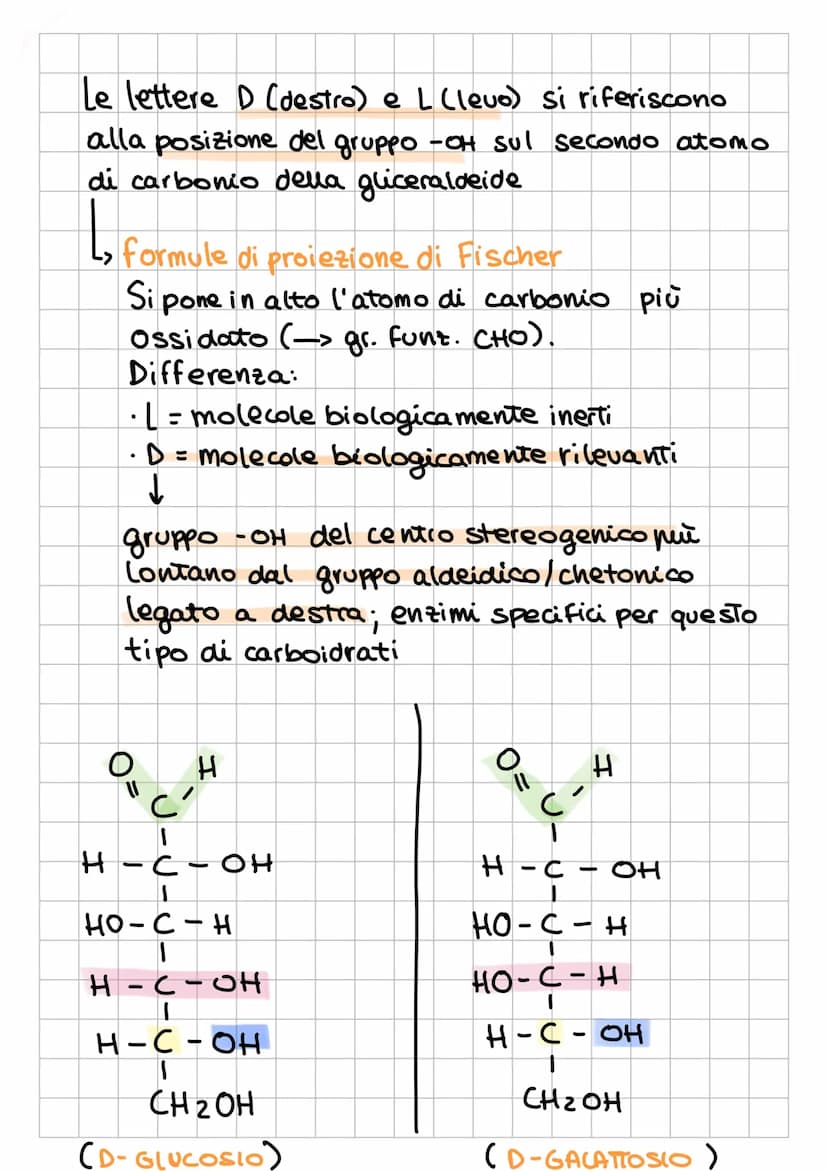 Le lettere D (destro) e L (levo) si riferiscono
alla posizione del gruppo -OH sul secondo atomo
di carbonio della gliceraldeide
↳ formule di proiezione di Fischer
Si pone in alto l'atomo di carbonio più
ossidato (→ gr. funz. CHO).
Differenza:
· L = molecole biologicamente inerti
· D = molecole biologicamente rilevanti
↓
gruppo -OH del centro stereogenico più
lontano dal gruppo aldeidico/chetonico
legato a destra; enzimi specifici per questo
tipo di carboidrati
O H
C
H - C - OH
HO - C - H
H - C - OH
H - C - OH
CH2OH
(D-GLUCOSIO)
O H
C
H - C - OH
HO - C - H
HO - C - H
H - C - OH
CH2OH
(D-GALATTOSIO)